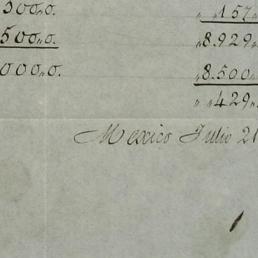 500„0. „ „157„
500„0. „8.929„
000„0. „8.500„
„ „429„
Mexico Julio 21